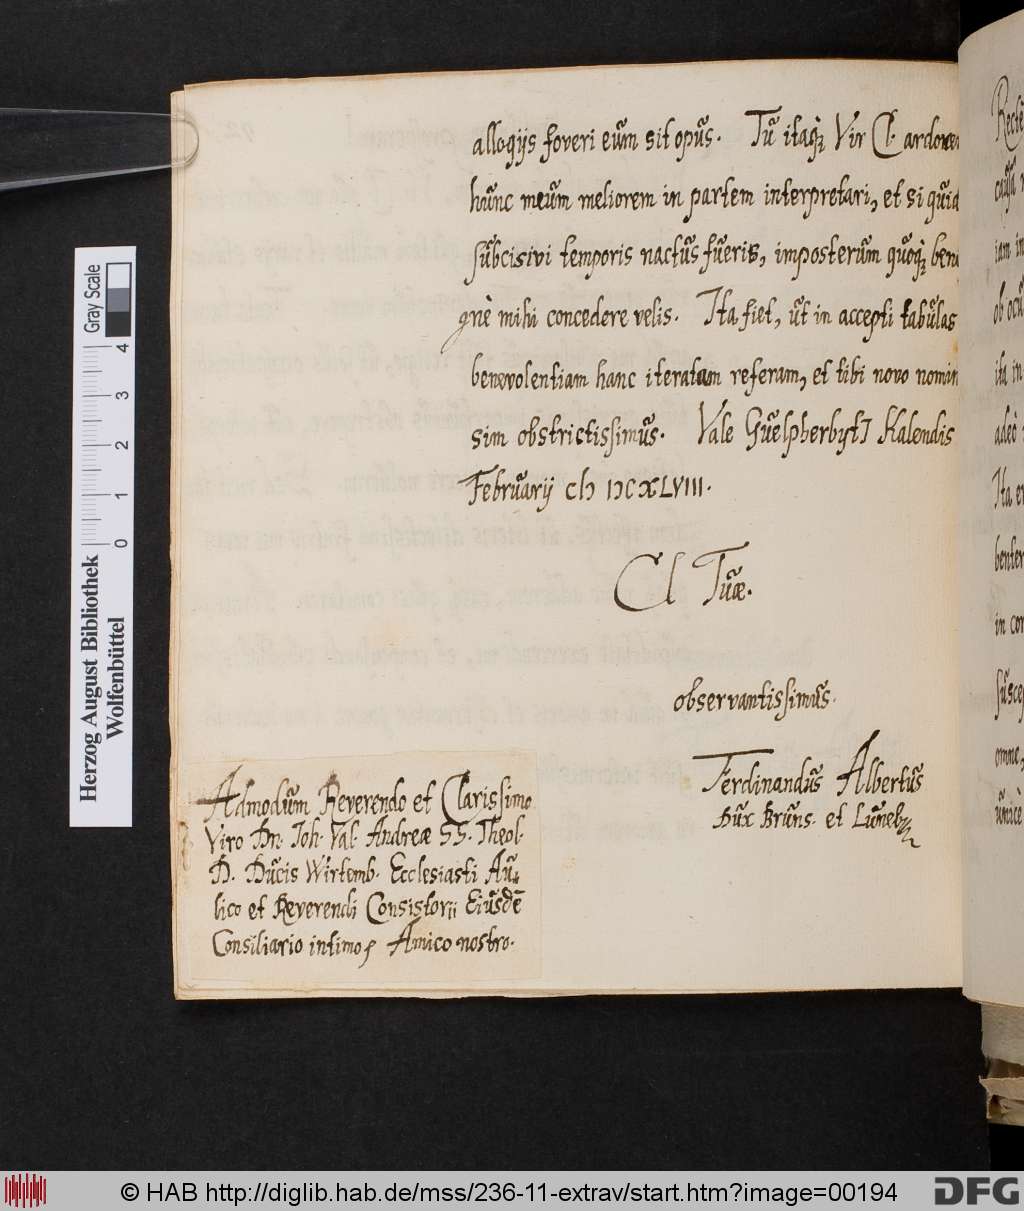 alloqijs foveri eum sit opus. Tu itaq; Vir Cl. ardorem
hunc meum meliorem in partem interpretari, et si quid
subcisivi temporis nactus fueris, imposterum quoq; beni
gnè mihi concedere velis. Ita fiet, ut in accepti tabulas
benevolentiam hanc iteratam referam, et tibi novo nomin
sim obstrictissimus. Vale Guelpherbyti Kalendis
Februarij
Cl Tuæ.
observantissimus.
Ferdinandus Albertus
Dux Bruns. et Luneb
Admodum Reverendo et Clarissimo
Viro Dn. Joh. Val. Andreæ SS. Theol.
D. Ducis Wirtemb. Ecclesiasti Au,
lico et Reverendi Consistorii Eiusdē
Consiliario intimo, Amico nostro.
Recte
causa
iam in
ob ocu
ita in
adeò
Ita
in con
suscep
omne,
unicè
Gray Scale
0 1 2 3 4
Herzog August Bibliothek
Wolfenbüttel
© HAB http://diglib.hab.de/mss/236-11-extrav/start.htm?image=00194
DFG